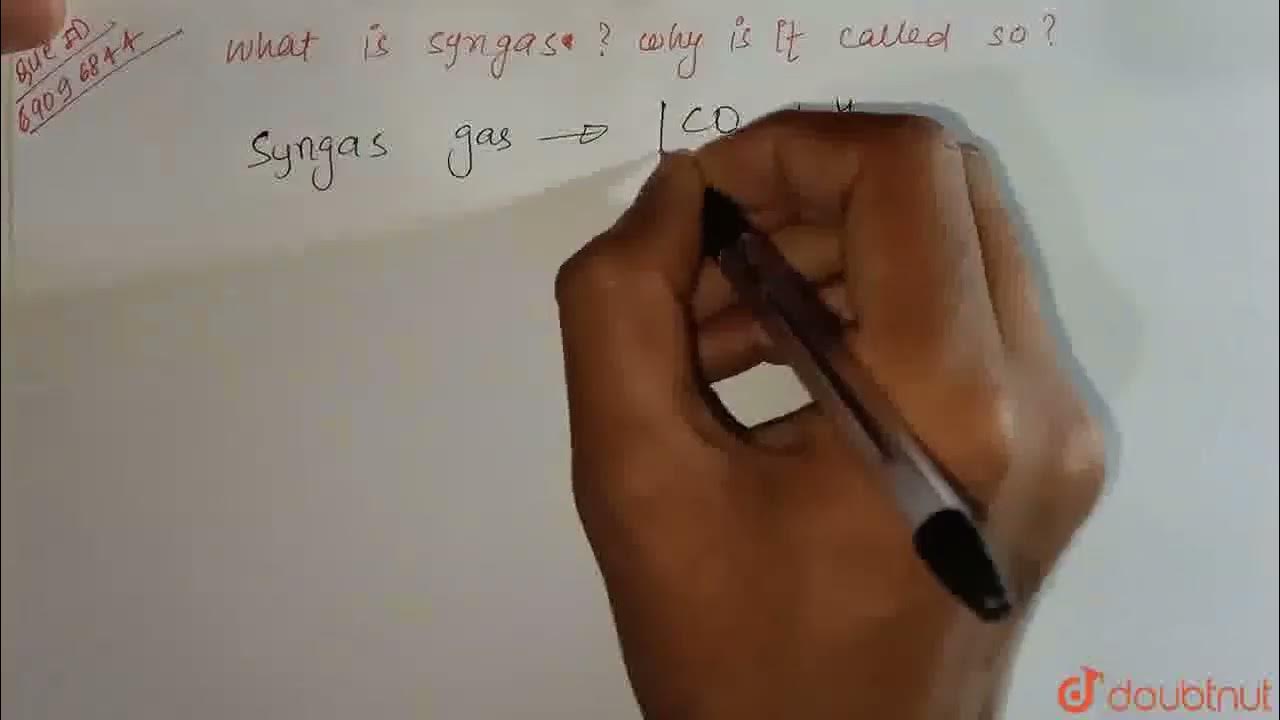 Que ID
69096844
What is syngas ? why is It called so?
Syngas gas → CO
doubtnut